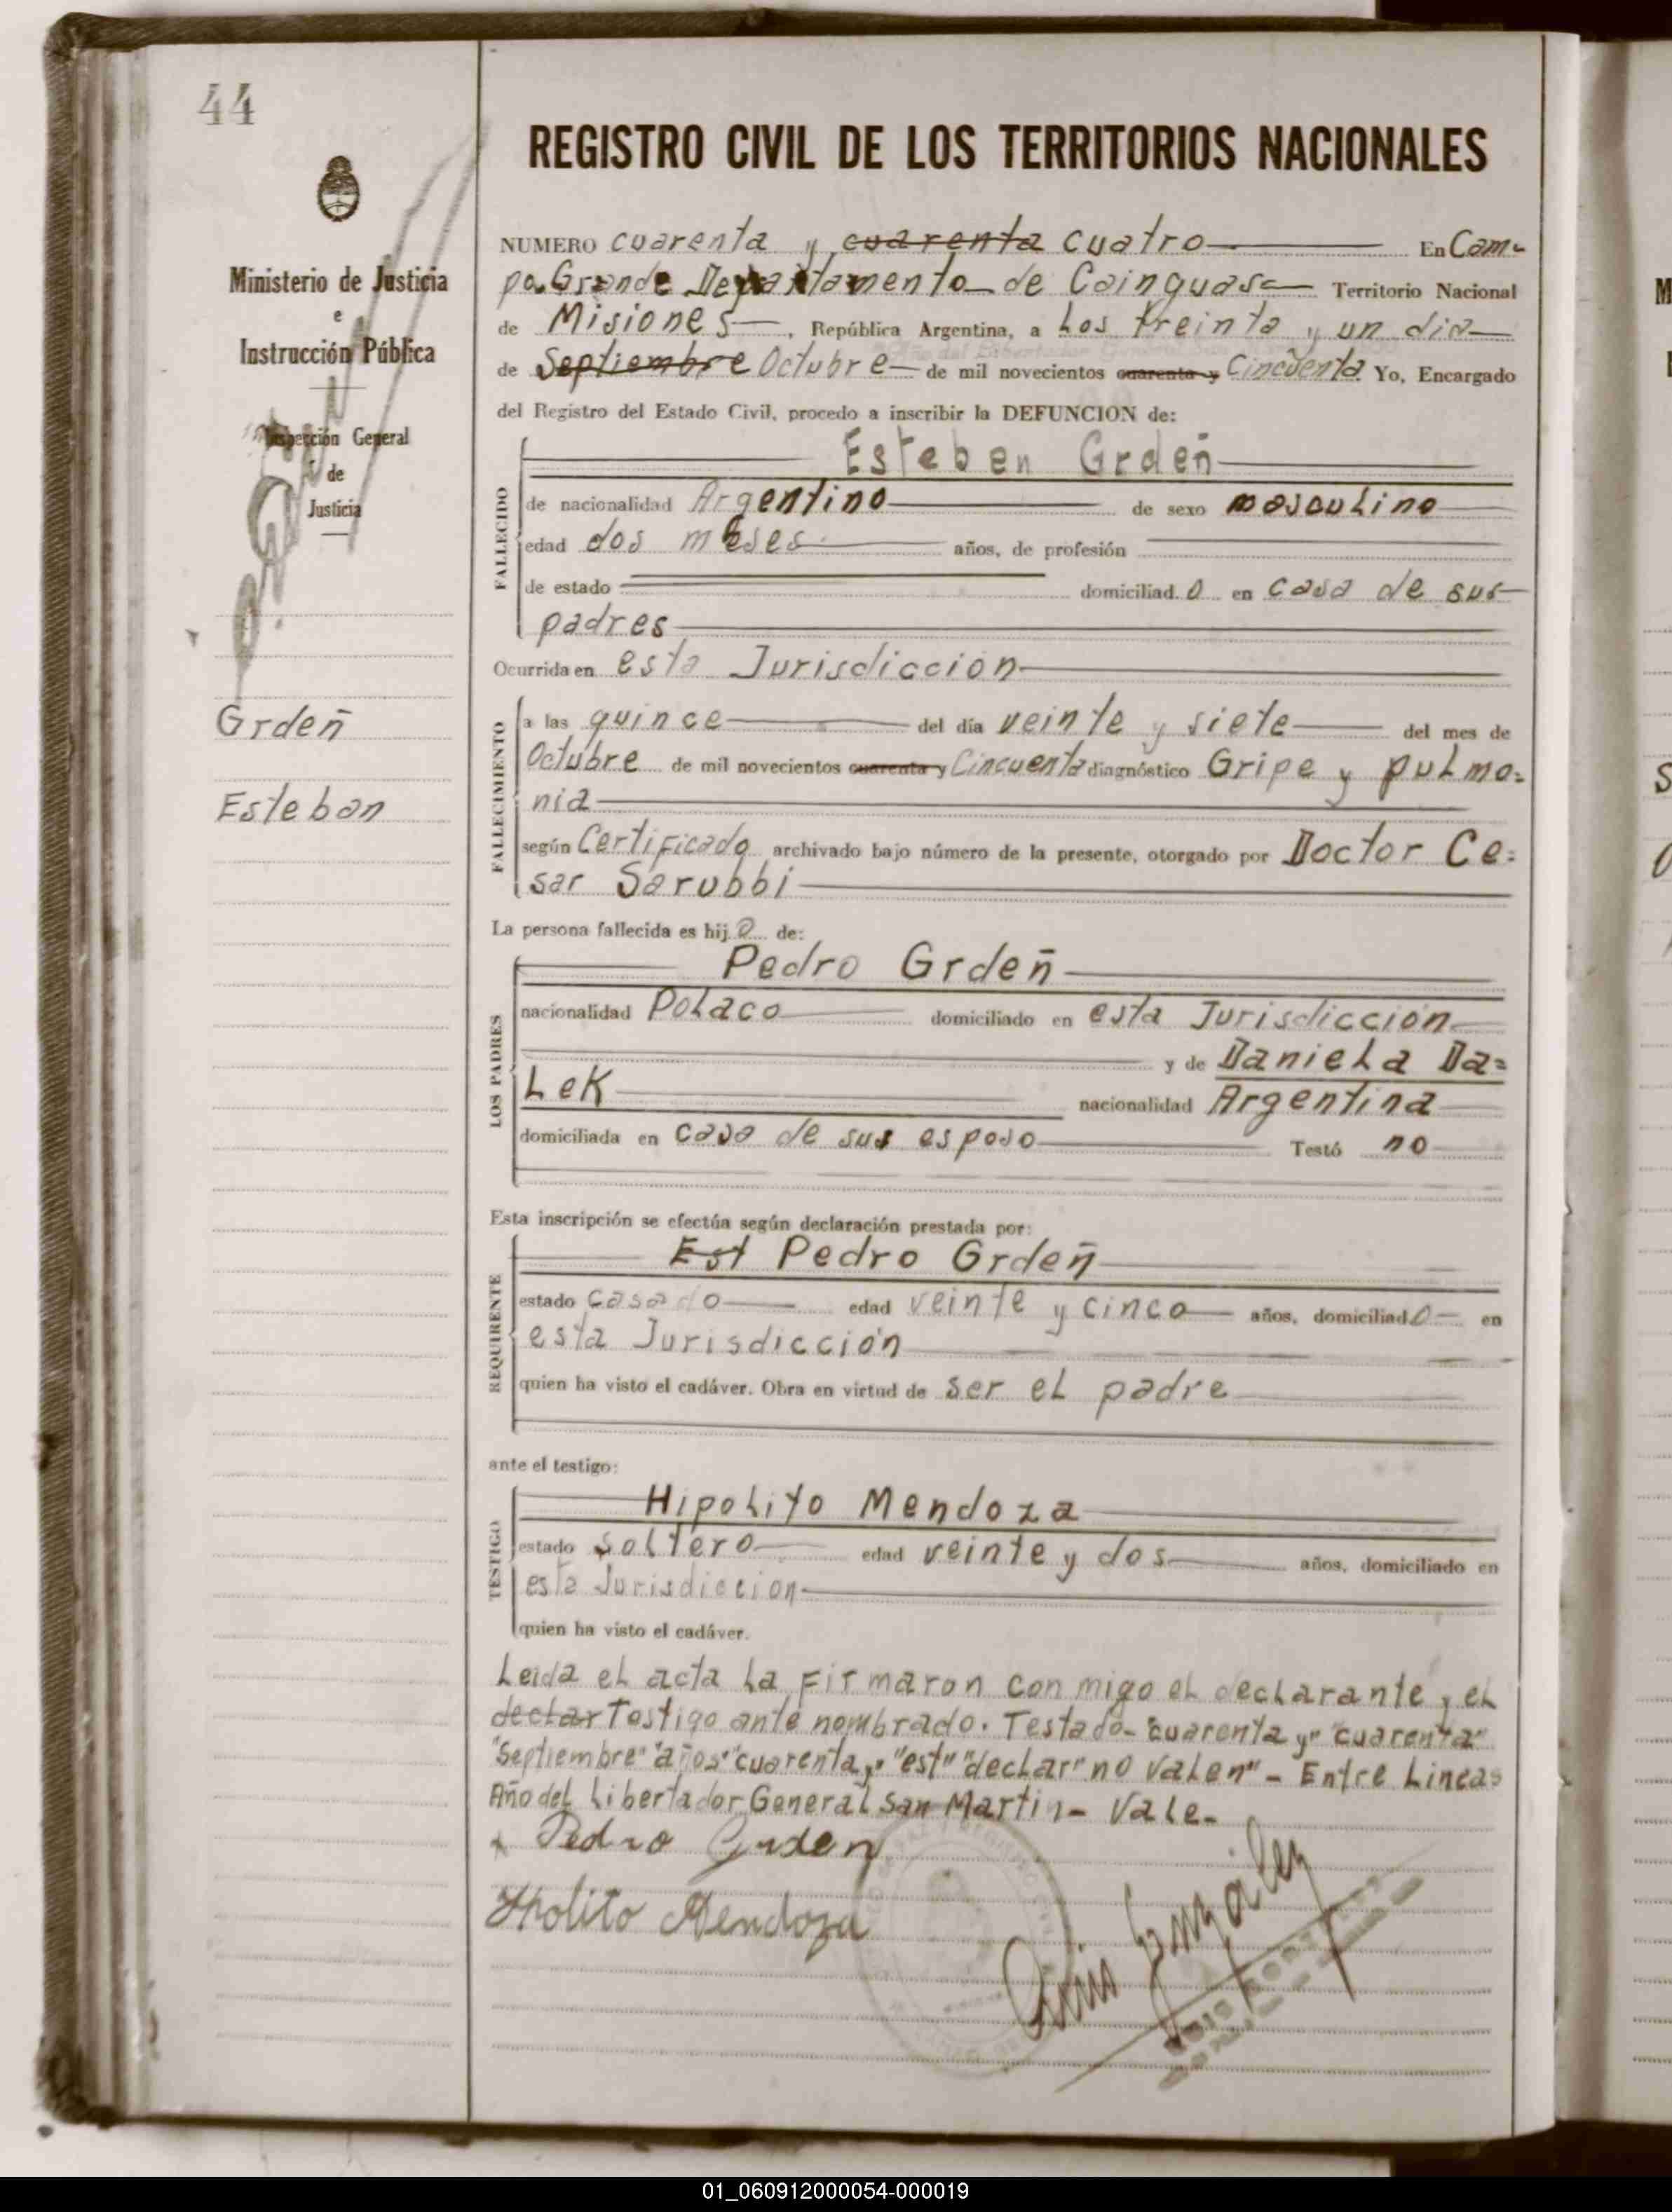 44
Ministerio de Justicia
e
Instrucción Pública
Inspección General
de
Justicia
Grdeñ
Esteban
REGISTRO CIVIL DE LOS TERRITORIOS NACIONALES
NUMERO cuarenta y cuarenta cuatro En Cam-
po Grande Departamento de Cainguas Territorio Nacional
de Misiones, República Argentina, a los treinta y un dia
Año del Libertador General San
de Septiembre Octubre de mil novecientos cuarenta y Cincuenta Yo, Encargado
del Registro del Estado Civil, procedo a inscribir la DEFUNCION de:
FALLECIDO
Esteben Grdeñ
de nacionalidad Argentino de sexo masculino
edad dos meses años, de profesión
de estado domiciliad o en casa de sus
padres
Ocurrida en esta Jurisdiccion
FALLECIMIENTO
a las quince del día veinte y siete del mes de
Octubre de mil novecientos cuarenta y Cincuenta diagnóstico Gripe y pulmo=
nia
según Certificado archivado bajo número de la presente, otorgado por Doctor Ce=
sar Sarubbi
La persona fallecida es hij o de:
LOS PADRES
Pedro Grdeñ
nacionalidad Polaco domiciliado en esta Jurisdicción
y de Daniela Da=
Lek nacionalidad Argentina
domiciliada en casa de sus esposo Testó no
Esta inscripción se efectúa según declaración prestada por:
REQUIRENTE
Est Pedro Grdeñ
estado casado edad veinte y cinco años, domiciliad o en
esta Jurisdicción
quien ha visto el cadáver. Obra en virtud de ser el padre
ante el testigo:
TESTIGO
Hipolito Mendoza
estado soltero edad veinte y dos años, domiciliado en
esta Jurisdiccion
quien ha visto el cadáver.
Leida el acta la firmaron con migo el declarante y el
declar Testigo ante nombrado. Testado- "cuarenta y" "cuarenta"
"Septiembre" "años" "cuarenta y" "est" "declar" no valen" - Entre Lineas
Año del Libertador General San Martin - Vale-
Pedro Grden
Ipolito Mendoza
01_060912000054-000019